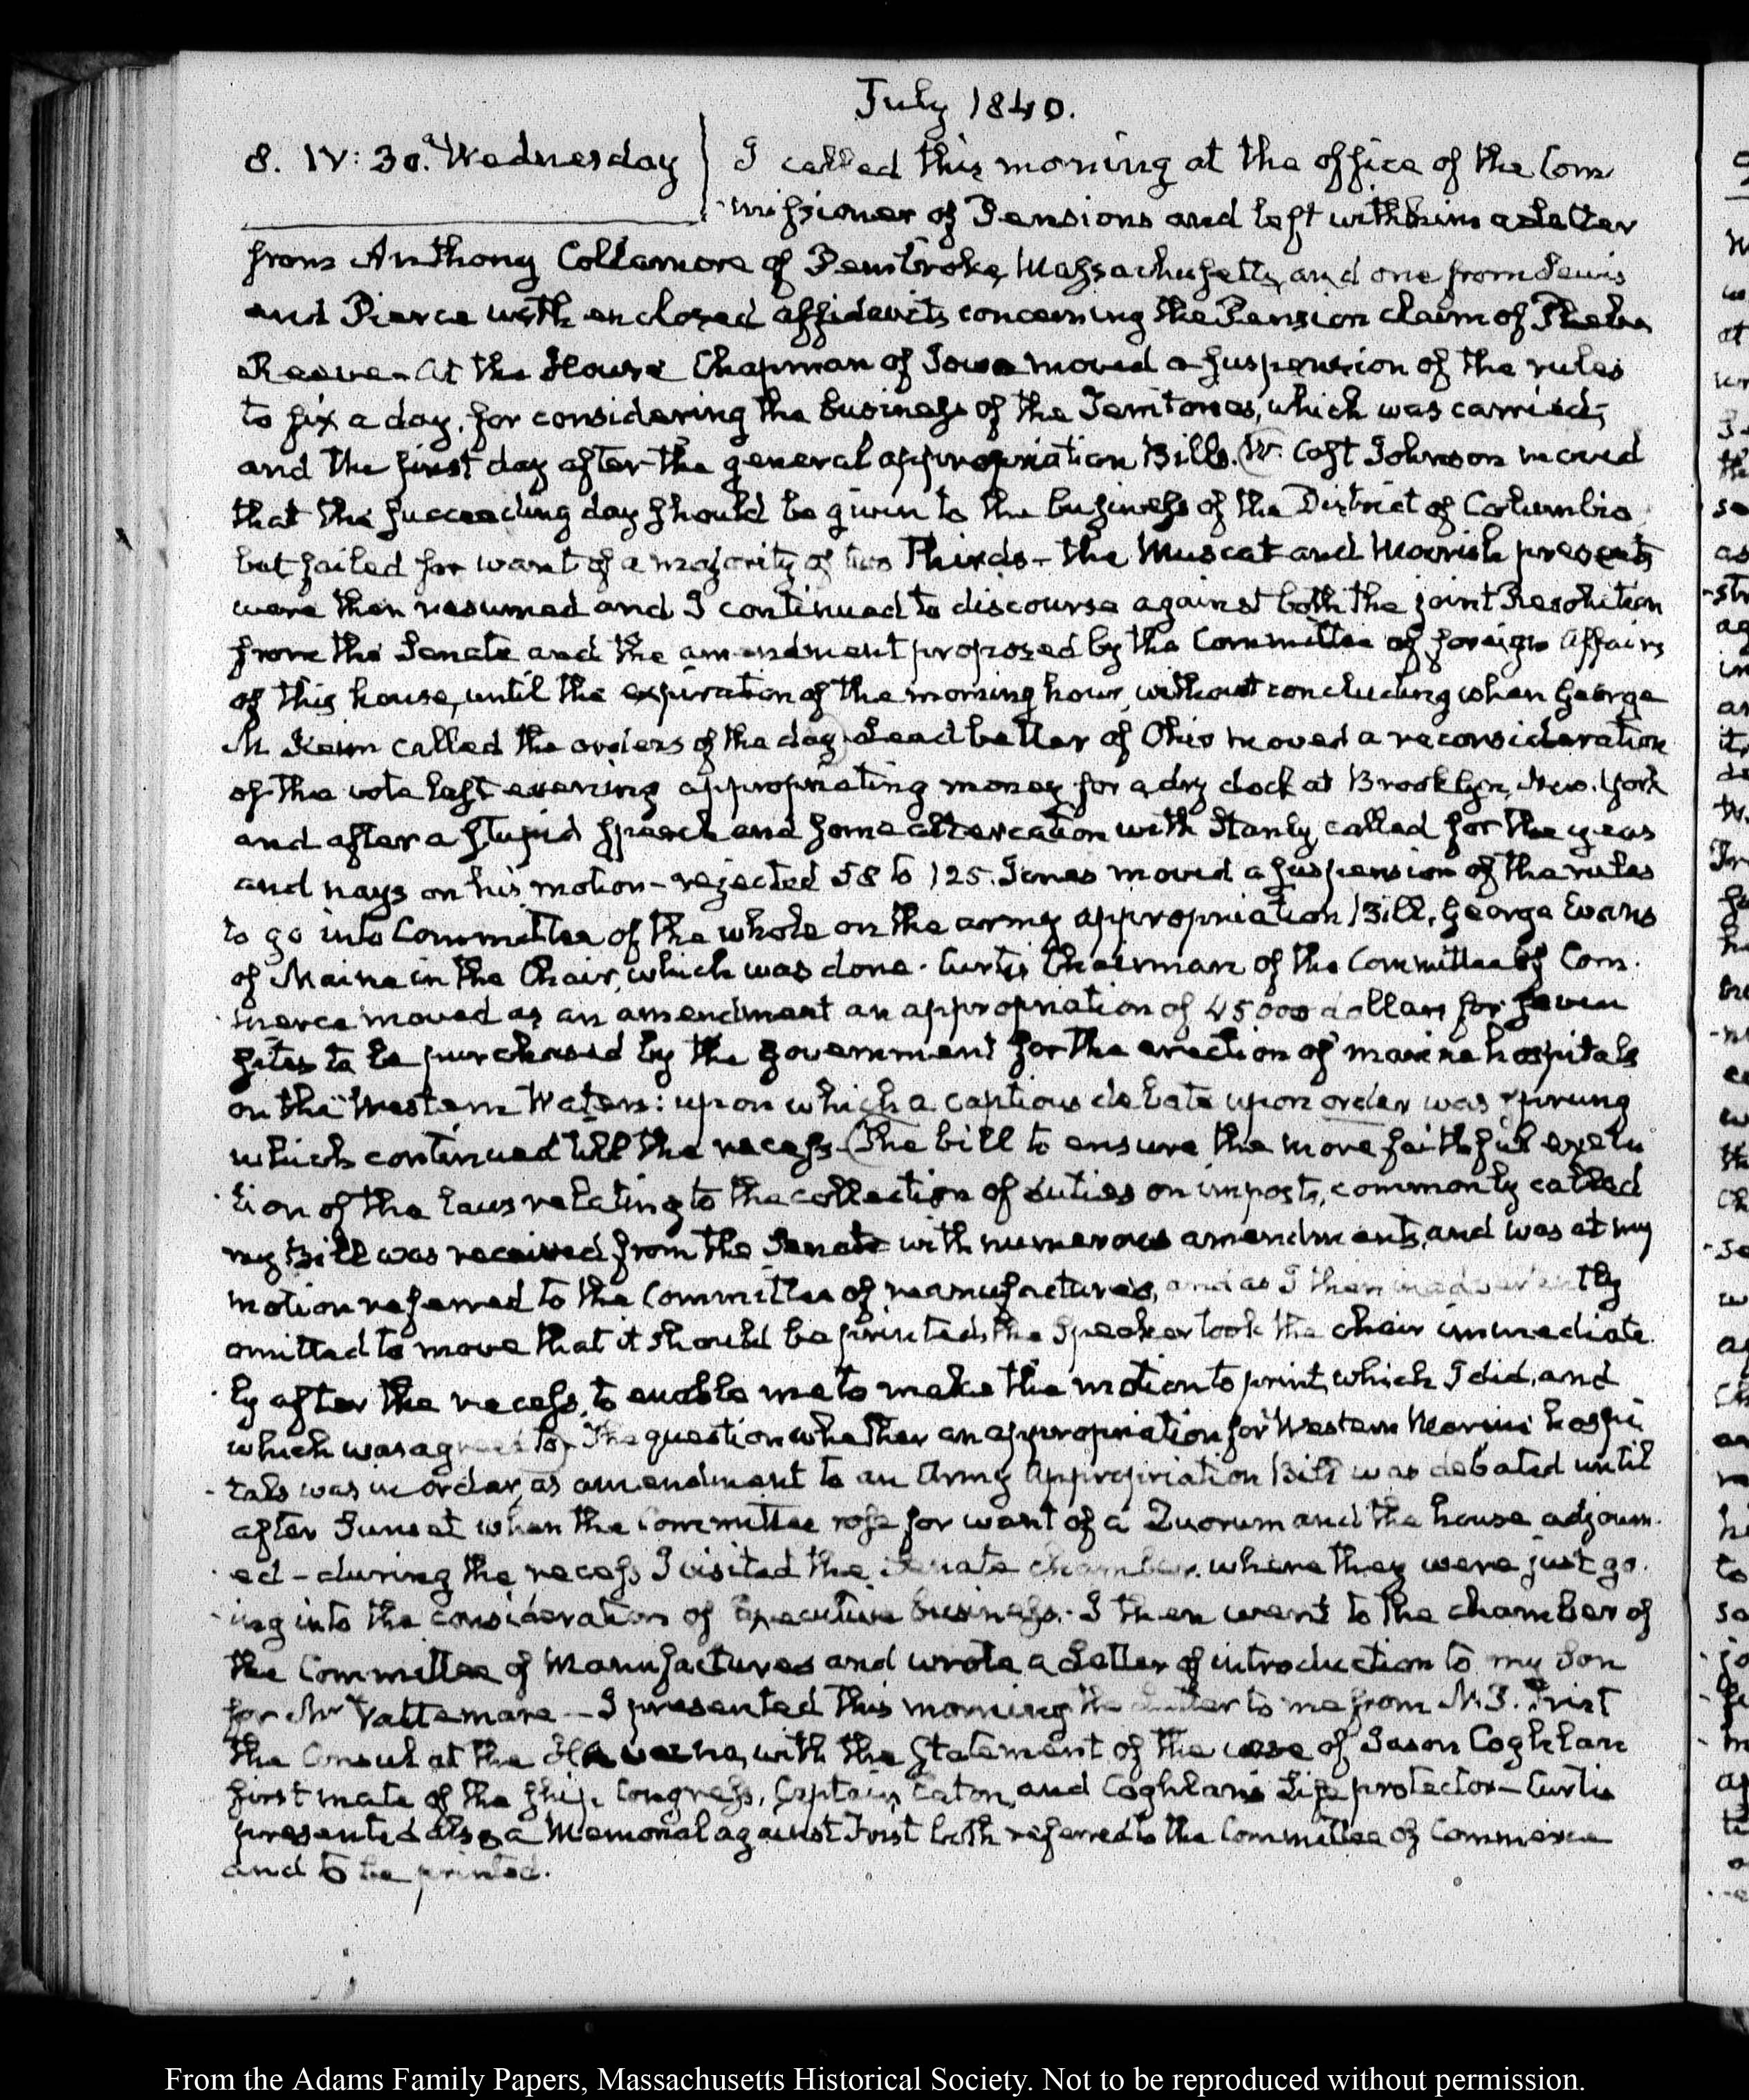 July 1840.
8. IV: 30. Wednesday
I called this morning at the office of the Com
missioner of Pensions and left with him a Letter
from Anthony Collamore of Pembroke, Massachusetts, and one from Lewis
and Pierce with enclosed affidavits concerning the Pension claim of Phebe
At the House Chapman of Iowa moved a suspension of the rules
to fix a day, for considering the business of the Territories, which was carried;
and the first day after the general appropriation Bills. W. Cost Johnson moved
that the succeeding day should be given to the business of the District of Columbia
but failed for want of a majority of two Thirds - the Muscat and Moorish presents
were then resumed and I continued to discourse against both the joint Resolution
from the Senate and the amendment proposed by the Committee of foreign Affairs
of this house, until the expiration of the morning hour, without concluding when George
M Keim called the orders of the day. Leadbetter of Ohio moved a reconsideration
of the vote last evening appropriating money for a dry dock at Brooklyn, New. York
and after a stupid speech and some altercation with Stanly called for the yeas
and nays on his motion - rejected 58 to 125. Jones moved a suspension of the rules
to go into Committee of the whole on the army appropriation Bill, George Evans
of Maine in the Chair, which was done. Curtis Chairman of the Committee of Com.
merce moved as an amendment an appropriation of 45000 dollars for seven
sites to be purchased by the government for the erection of marine hospitals
on the Western Waters: upon which a captious debate upon order was sprung
which continued till the recess. The bill to ensure the more faithful execu
tion of the laws relating to the collection of duties on imposts, commonly called
my Bill was received from the Senate with numerous amendments, and was at my
motion referred to the Committee of manufactures, and as I then inadvertently
omitted to move that it should be printed, the Speaker took the chair immediate.
ly after the recess, to enable me to make the motion to print, which I did, and
which was agreed to. The question whether an appropriation for Western Marine hospi
tals was in order, as amendment to an Army Appropriation Bill was debated until
after Sunset when the Committee rose for want of a Quorum and the house adjourn.
ed - during the recess I visited the Senate chamber, where they were just go.
ing into the consideration of Executive business. - I then went to the chamber of
the Committee of Manufactures and wrote a Letter of introduction to my Son
for Mr Vattemare - I presented this morning the Letter to me from N. P. Trist
the Consul at the Havana, with the statement of the case of Jason Coghlan
first mate of the ship Congress, Captain Eaton, and Coghlan's Life protector - Curtis
presented also a Memorial against Trist both referred to the Committee of Commerce
and to be printed.
From the Adams Family Papers, Massachusetts Historical Society. Not to be reproduced without permission.